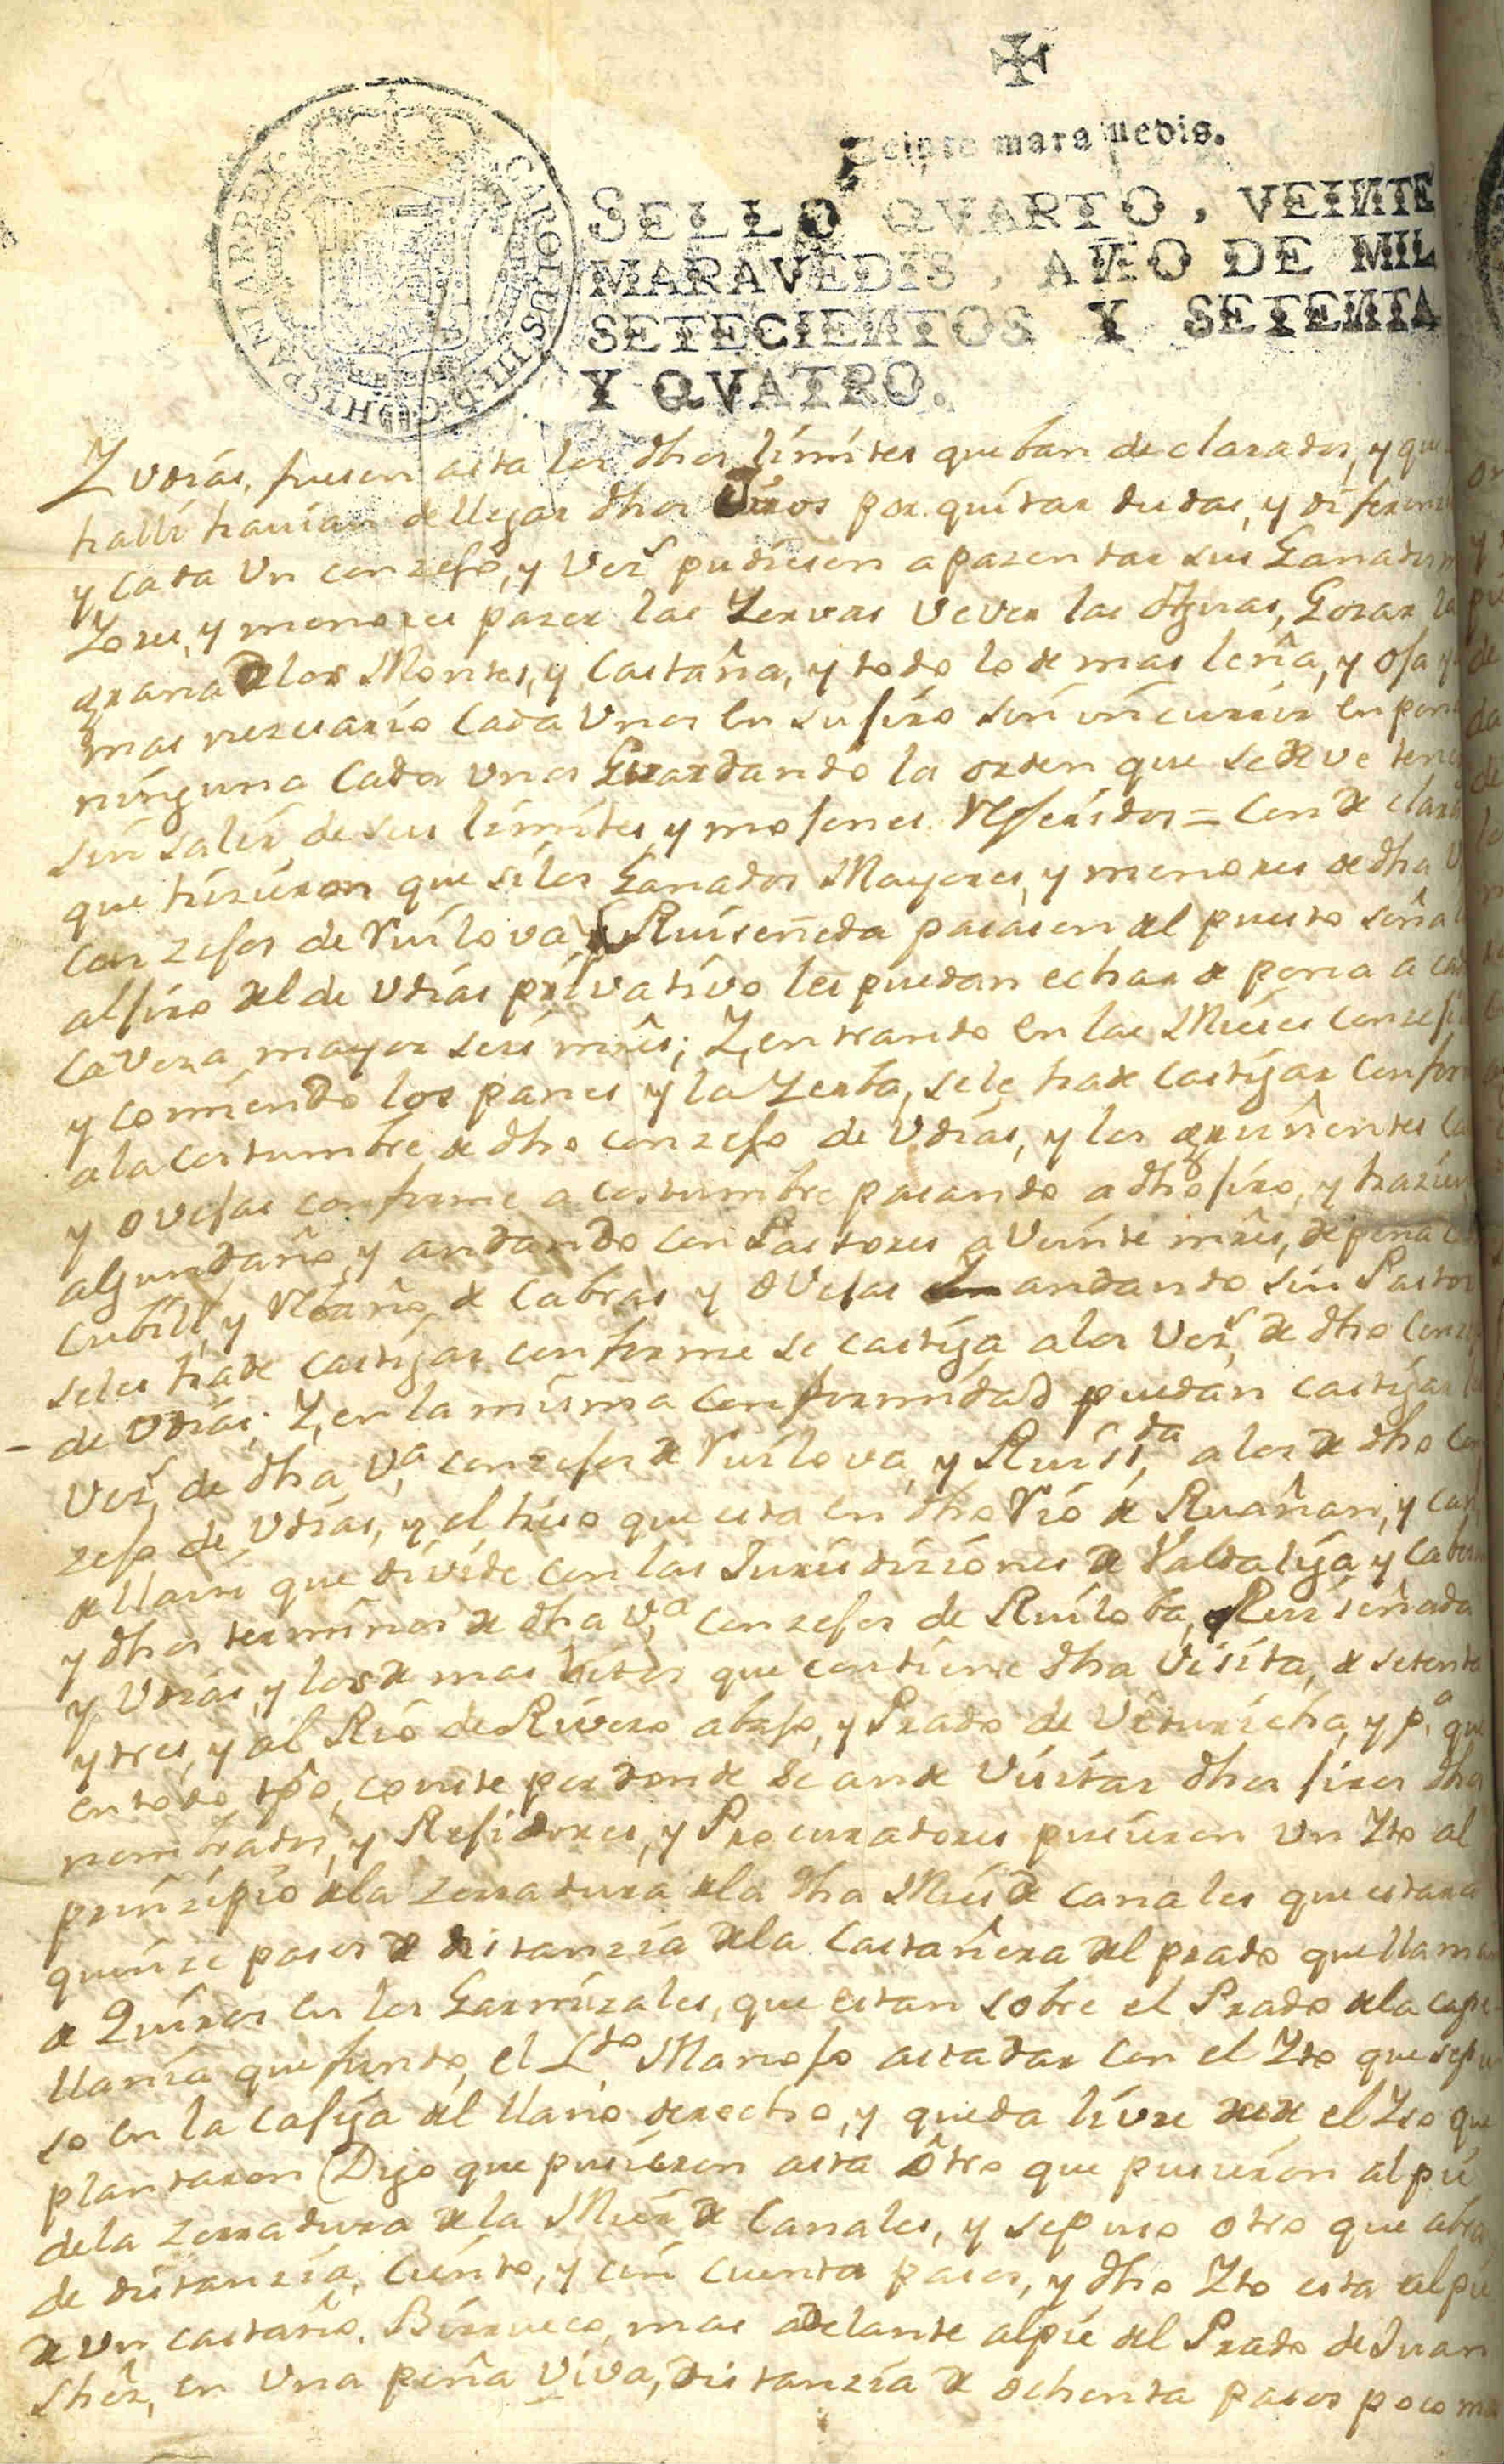 Veinte maravedis.
SELLO QVARTO, VEINTE
MARAVEDIS, AÑO DE MIL
SETECIENTOS Y SETENTA
Y QVATRO.
CAROLUS III D G HISPANIAR REX
Y Vdias, fuesen asta los dhos limites que ban declarados, y que
halli havian de llegar dhos Jiros por quitar dudas, y diferen
y Cada Vn conzejo, y Vezs pudiesen apazentar sus Ganados m
Yores, y menores pazer las Yervas Vever las Aguas, Gozar la
grana de los Montes, y Castaña, y todo lo de mas leña, y Oja y
mas nezesario Cada Vnos en su jiro sin incurrir en pena
ninguna Cada Vnos Guardando la orden que se deve tene
sin salir de sus limites y mojones Referidos = Con declara
que hizieron que si los Ganados Mayores, y menores de dha V
Conzejos de Ruilova, y Ruiseñeda pasasen del puesto señal
al jiro del de Vdias privativo les puedan echar de pena a cad
Caveza mayor seis mrs; Y, entrando en las Mieses Conzeji
y comiendo los panes y la Yerba, se le ha de Castigar Conform
a la Costumbre de dho conzejo de Vdias, y los gruñentes Ca
y ovejas conforme a costumbre pasando a dho jiro, y hazien
algun daño, y andando con Pastores a Veinte mrs, de pena ca
Cubill, y Rebaño de Cabras y oVejas andando sin Pastor
se les ha de castigar conforme se castiga a los Vezs de dho Conze
de Vdias; Y, en la misma Conformidad puedan castigar l
Vezs de dha Va conzejos de Ruilova, y Ruisda a los de dho Con
zejo de Vdias, y el hiso que esta en dho Rio de Ruañan, y Can
de llain que divide con las Jurisdiziones de Valdaliga y Cabezn
y dhos terminos de dha Va Conzejos de Ruiloba, Ruiseñada
y Vdias, y los de mas hitos que contiene dha Visita, de setenta
y tres, y al Rio de Rivero abajo, y Prado de Vituricha, y pa que
en todo tpo, conste por donde se an de Visitar dhos jiros dhos
nombrados, y Rejidores, y Procuradores pusieron Vn Yto al
prinzipio de la zerradura de la dha Mies de Canales que estara
quinze pasos de distanzia de la Castañera del prado que llama
de Quiros en los Garmizales, que estan sobre el Prado de la Cape
llania que fundo, el Ldo Manojo asta dar con el Yto que se pu
so en la Casija del llano derecho, y queda livre el Yto que
plantaron (Digo que pusieron asta otro que pusieron al pie
de la zerradura de la Mies de Canales, y se puso otro que abra
de distanzia, ciento, y cincuenta pasos, y dho Yto esta al pie
de Vn castaño Birrueco, mas adelante al pie del Prado de Juan
Shez, en Vna peña Viva, distanzia de ochenta pasos poco ma